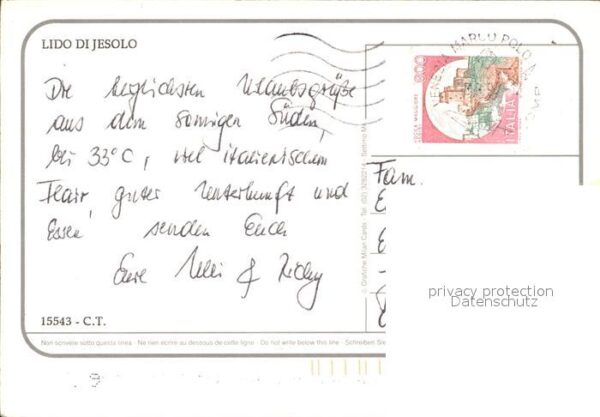 LIDO DI JESOLO
Die herzlichsten Urlaubsgrüße
aus dem sonnigen Süden,
bei 33°C, viel italienischem
Flair, guter Unterkunft und
Essen, senden Euch
Eure Ulli & Ricky
15543 - C.T.
Non scrivere sotto questa linea - Ne rien écrire au dessous de cette ligne - Do not write below this line - Schreiben Sie
VENEZIA MARCO POLO
800
ITALIA
Fam.
privacy protection
Datenschutz